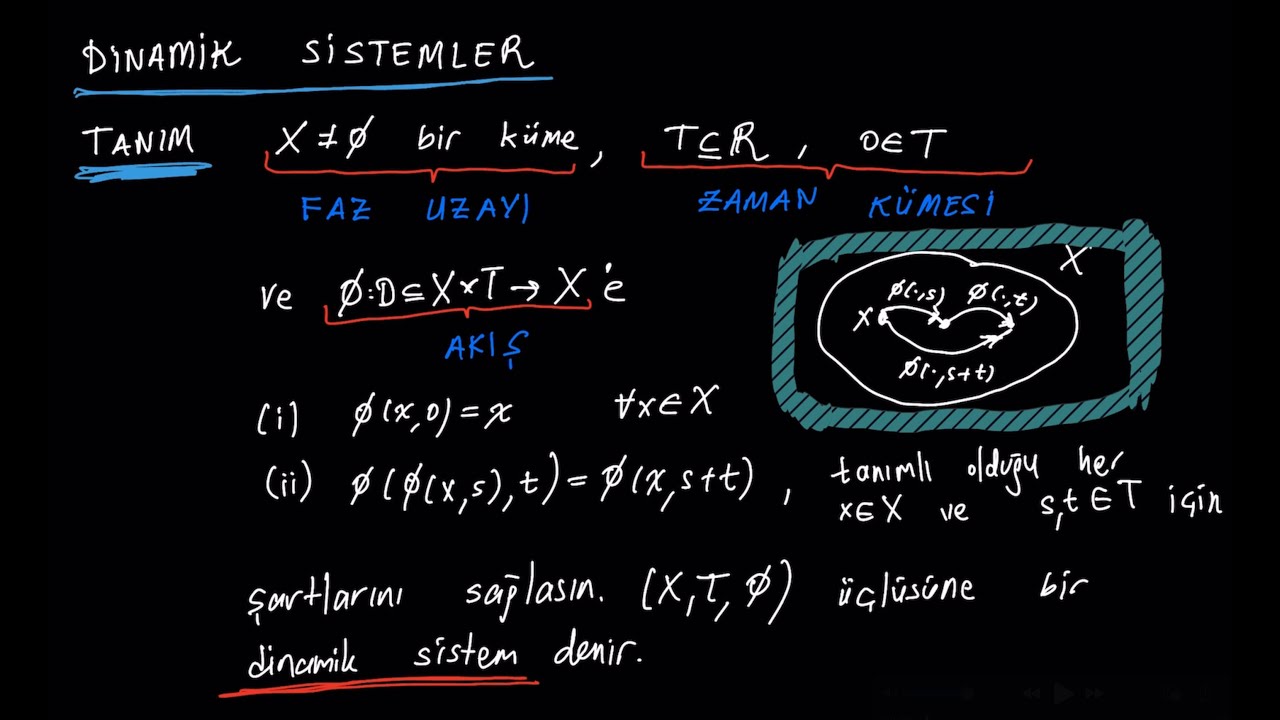 DİNAMİK SİSTEMLER
TANIM X ≠ ∅ bir küme, T⊆ℝ, 0∈T
FAZ UZAYI ZAMAN KÜMESİ
ve ϕ:D⊆X×T→X'e
AKIŞ
X
ϕ(·,s) ϕ(·,t)
x
ϕ(·,s+t)
(i) ϕ(x,0)=x ∀x∈X
(ii) ϕ(ϕ(x,s),t)=ϕ(x,s+t), tanımlı olduğu her
x∈X ve s,t∈T için
şartlarını sağlasın. (X,T,ϕ) üçlüsüne bir
dinamik sistem denir.